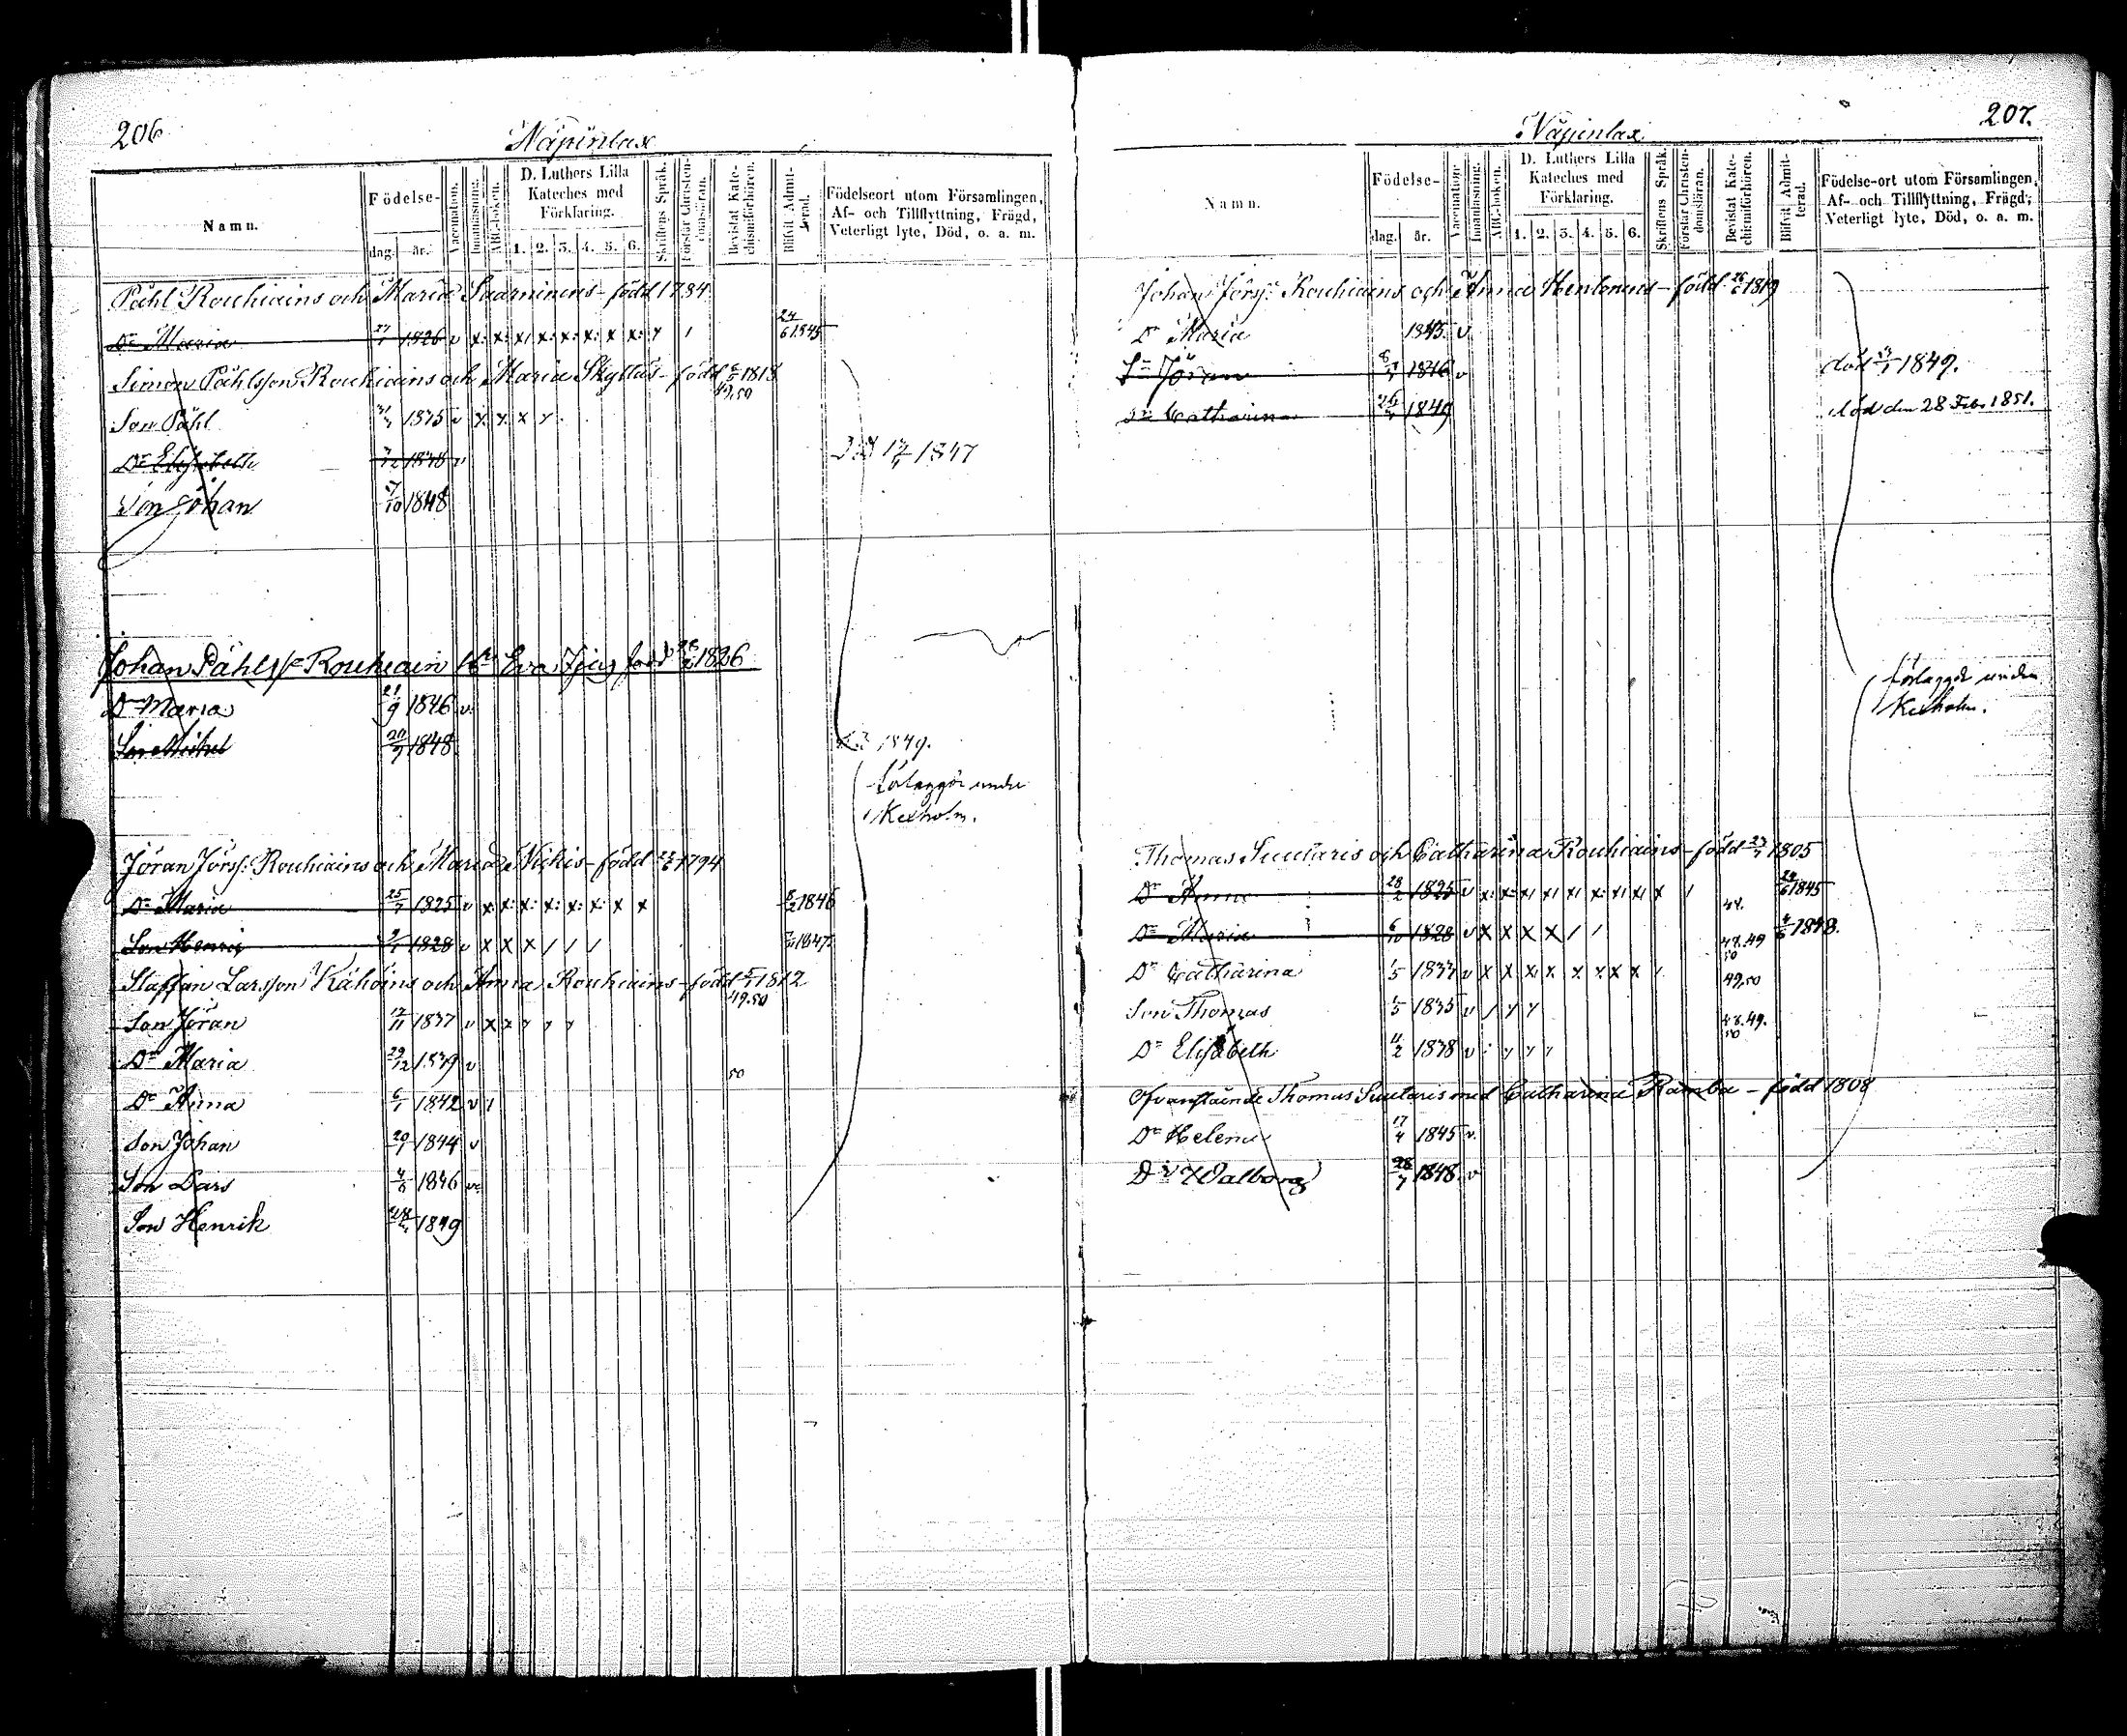 206
Näpinlax
Namn.
Födelse-
dag.
år.
Vaccination.
Innanläsning.
ABC-boken.
D. Luthers Lilla
Kateches med
Förklaring.
1. 2. 3. 4. 5. 6.
Skriftens Språk.
Förstår Christen-
domsläran.
Bevistat Kate-
chismiförhören.
Blifvit Admit-
terad.
Födelseort utom Församlingen,
Af- och Tillflyttning, Frägd,
Veterligt lyte, Död, o. a. m.
Påhl Rouhiains och Maria Suarninens - född 1784
Dr Maria 1826 v x: x: x: x: x: x x: 24/6 1845
Simon Påhlsson Rouhiains och Maria Skyttas - född 1818
49.50
Son Påhl 1835 v x x x
Dr Elisabeth v 1847
Son Johan 7/10 1848
Johan Påhls Rouhiain Eva född 1826
Dr Maria 21/9 1846 v.
Son Michel 20/9 1848 1849.
förlaggde under
Kexholm.
Jöran Jörss: Rouhiains och Maria - född 1794
Dr Maria 25/7 1825 v x: x: x: x: x: x x 1846
Son Henrik 1828 v x x x / / / 1847
Staffan Larsson Kähöins och Anna Rouhiains - född 1812
49.50
Son Jöran 12/11 1837 v x x
Dr Maria 29/12 1839 v
50
Dr Anna 6/1 1842 v 1
Son Johan 1844 v
Son Lars 4/6 1846 v
Son Henrik 1849
207.
Näpinlax
Namn.
Födelse-
dag.
år.
Vaccination.
Innanläsning.
ABC-boken.
D. Luthers Lilla
Kateches med
Förklaring.
1. 2. 3. 4. 5. 6.
Skriftens Språk.
Förstår Christen-
domsläran.
Bevistat Kate-
chismiförhören.
Blifvit Admit-
terad.
Födelse-ort utom Församlingen,
Af- och Tillflyttning, Frägd,
Veterligt lyte, Död, o. a. m.
Johan Jörss: Rouhiains och Anna Hentonens - född 1819
Dr Maria 1843 v
Sn Jöran 1846 v död 1849.
Dr Catharina 1849 död den 28 Feb. 1851.
förlaggde under
Kexholm.
Thomas Suutaris och Catharina Rouhiains - född 1805
Dr Anna 28/2 1825 v 48. 1845
Dr Maria 6/10 1828 v x x x x / / 48.49 1848.
50
Dr Catharina 1/5 1831 v x x x x x x x x 49,50
Son Thomas 1/5 1835 v / 48.49.
50
Dr Elisabeth 11/2 1838 v
Ofvanstående Thomas Suutaris med Catharina Ramba - född 1808
Dr Helena 17/4 1845 v.
Dr Walborg 28/7 1848. v